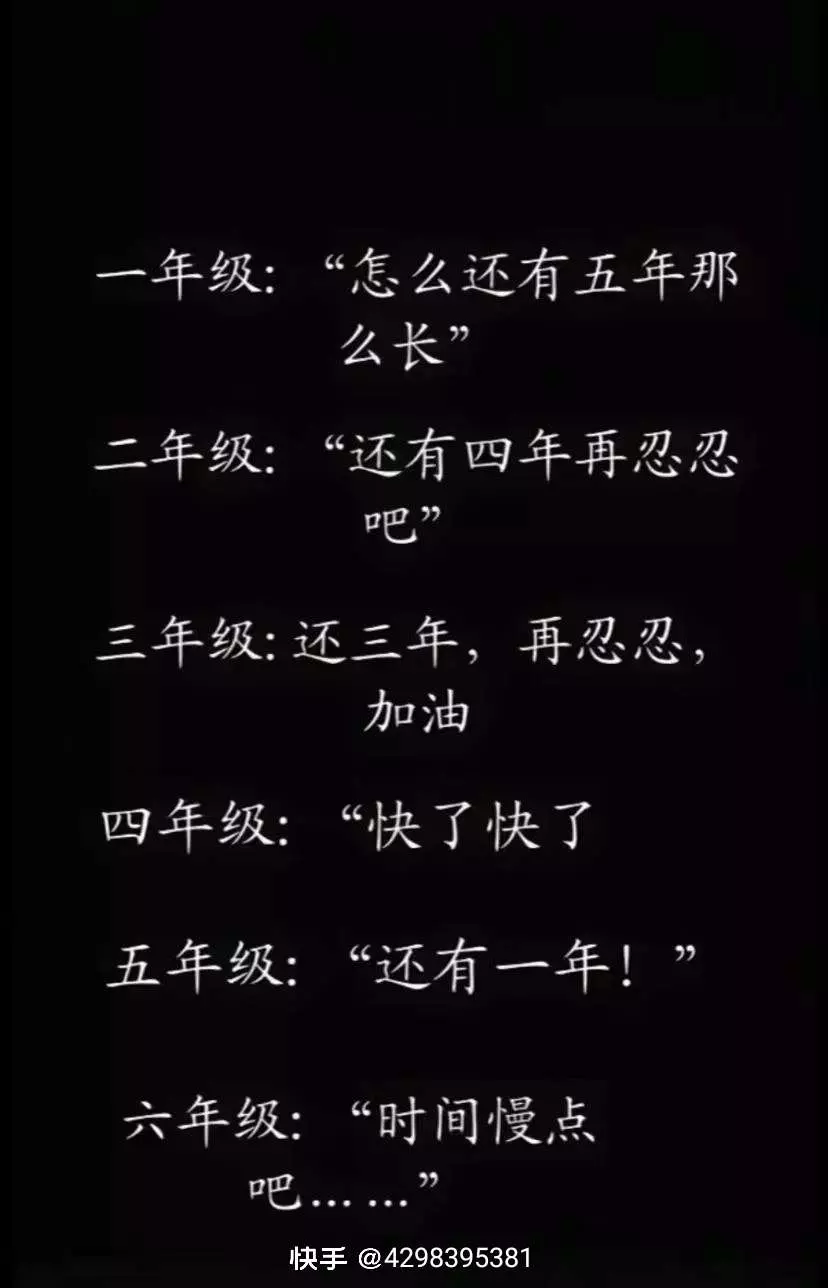 一年级：“怎么还有五年那
么长”
二年级：“还有四年再忍忍
吧”
三年级：还三年，再忍忍，
加油
四年级：“快了快了
五年级：“还有一年！”
六年级：“时间慢点
吧……”
快手 @4298395381